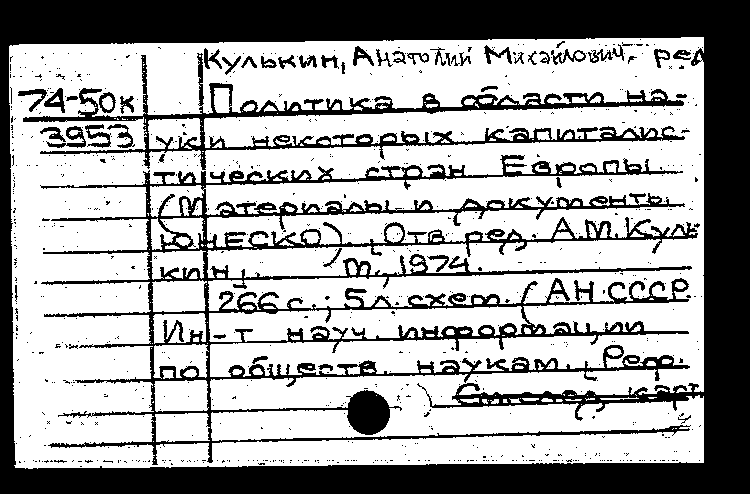 Кулькин, Анатолий Михайлович, ред
74-50к Политика в области на-
3953 уки некоторых капиталис-
тических стран Европы.
(Материалы и документы
ЮНЕСКО). [Отв. ред. А.М. Куль
кин]. М., 1974.
266 с.; 5 л. схем. (АН СССР
Ин-т науч. информации
по обществ. наукам. [Реф.
См. след. карт